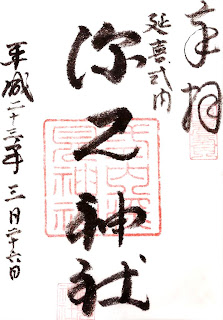 奉拝
延喜式内
深見神社
平成二十三年三月二十六日